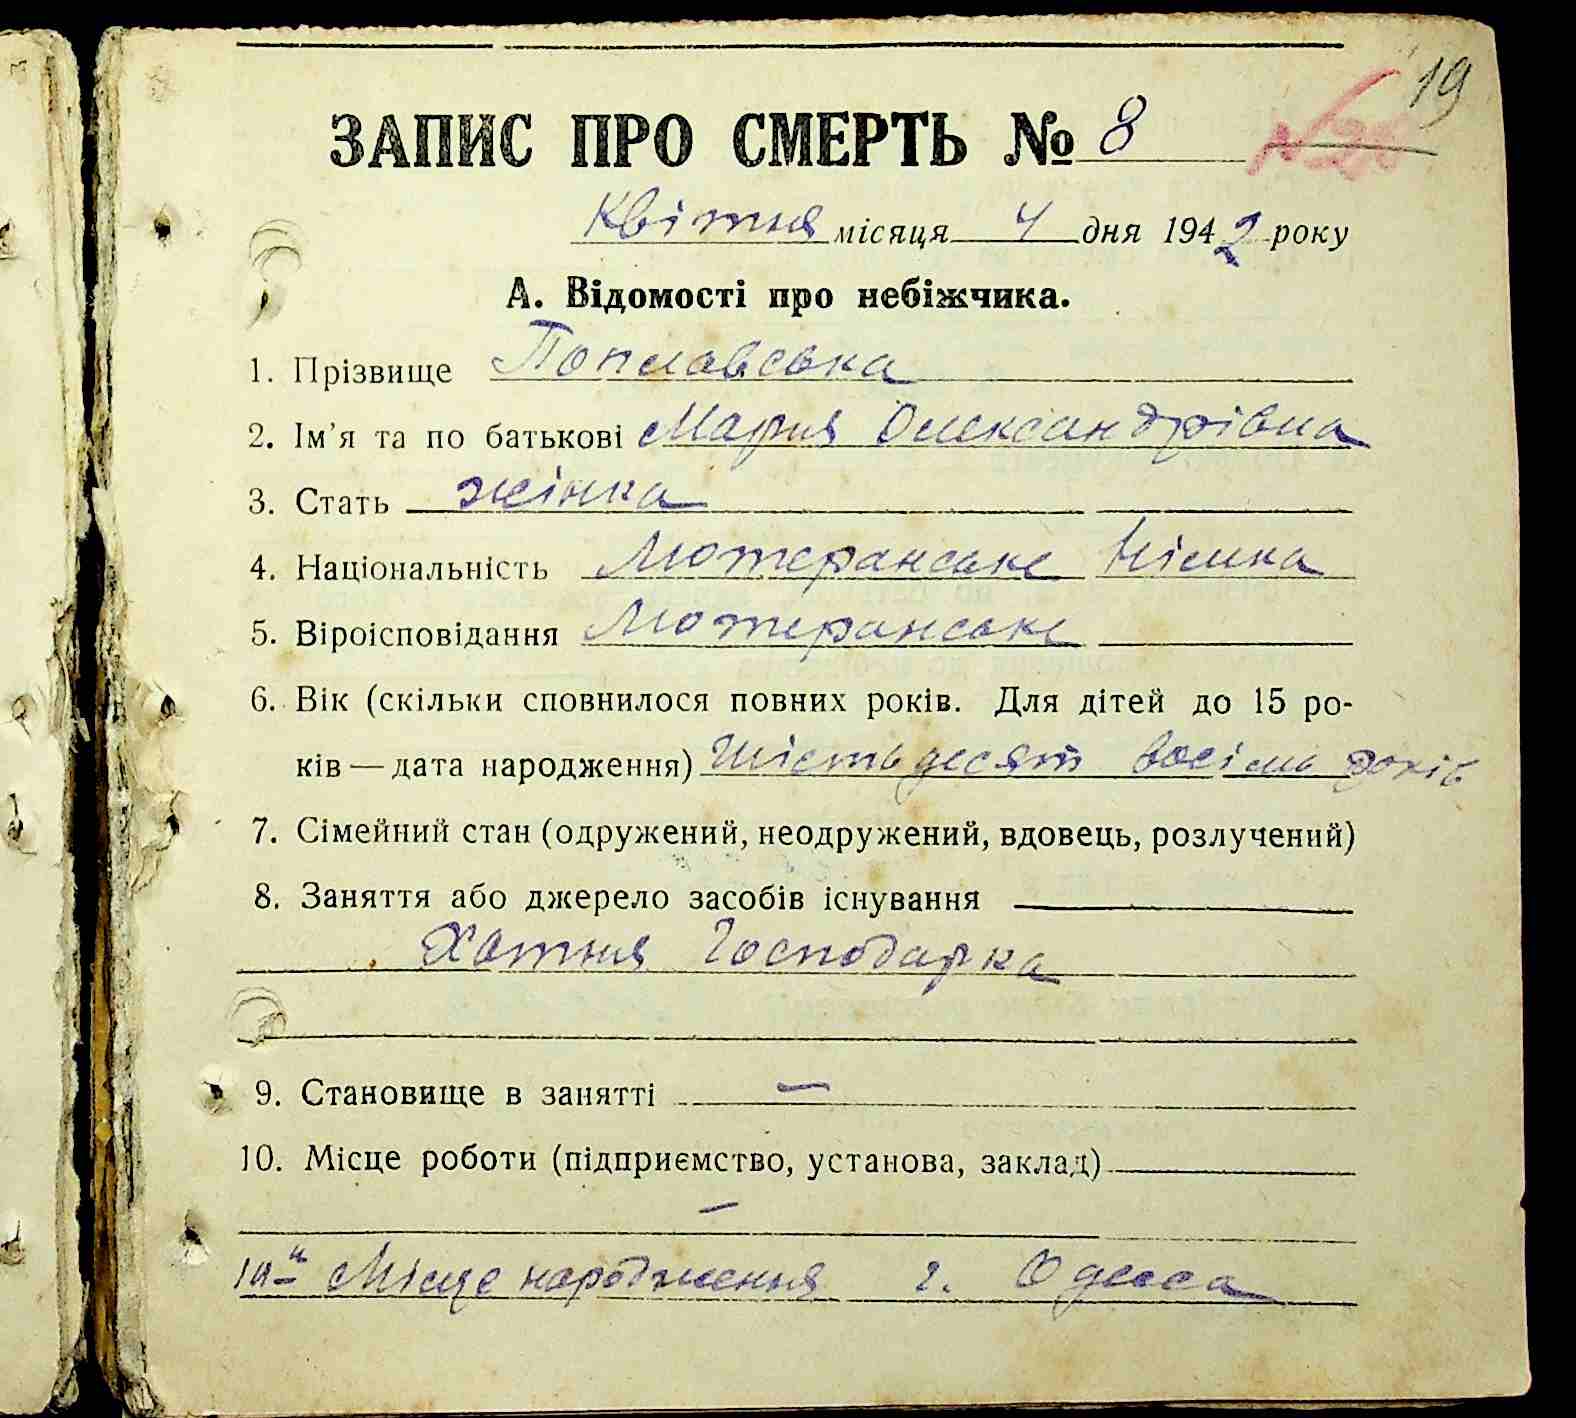 19
ЗАПИС ПРО СМЕРТЬ № 8
Квітня місяця 4 дня 1942 року
А. Відомості про небіжчика.
1. Прізвище Поплавська
2. Ім'я та по батькові Мария Олександрівна
3. Стать жінка
4. Національність Лютеранське Німка
5. Віроісповідання Лютеранське
6. Вік (скільки сповнилося повних років. Для дітей до 15 ро-
ків — дата народження) Шістьдесят восімь років
7. Сімейний стан (одружений, неодружений, вдовець, розлучений)
8. Заняття або джерело засобів існування
Хатня Господарка
9. Становище в занятті —
10. Місце роботи (підприємство, установа, заклад)
—
Місце народження г. Одесса